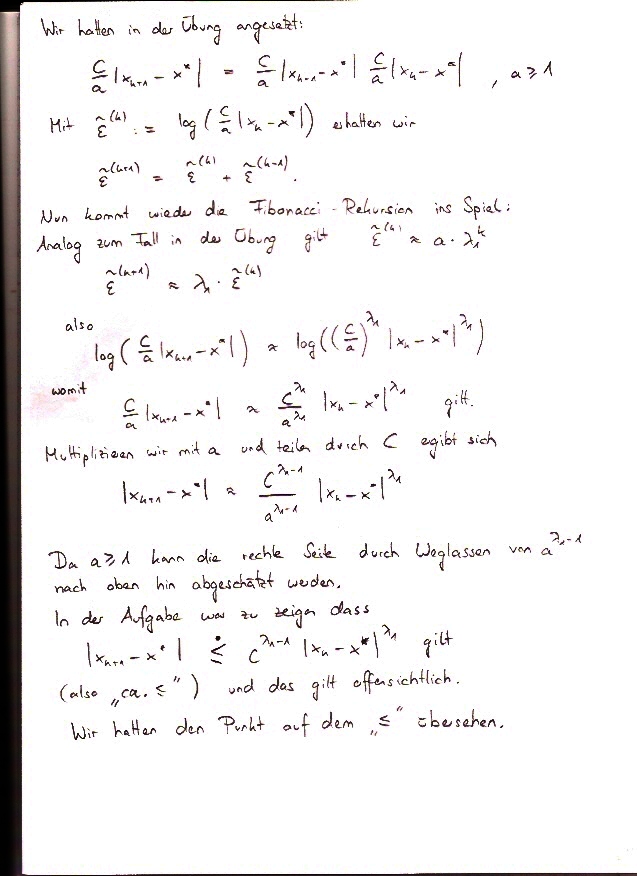 Wir hatten in der Übung angesetzt:
C/a |x_{k+1} - x*| = C/a |x_{k-1} - x*| C/a |x_k - x*| , a ≥ 1
Mit ε̃^{(k)} := log( C/a |x_k - x*| ) erhalten wir
ε̃^{(k+1)} = ε̃^{(k)} + ε̃^{(k-1)}.
Nun kommt wieder die Fibonacci-Rekursion ins Spiel:
Analog zum Fall in der Übung gilt ε̃^{(k)} ≈ a · λ₁^k
ε̃^{(k+1)} ≈ λ₁ · ε̃^{(k)}
also
log( C/a |x_{k+1} - x*| ) ≈ log( (C/a)^{λ₁} |x_k - x*|^{λ₁} )
womit
C/a |x_{k+1} - x*| ≈ C^{λ₁}/a^{λ₁} |x_k - x*|^{λ₁} gilt.
Multiplizieren wir mit a und teilen durch C ergibt sich
|x_{k+1} - x*| ≈ C^{λ₁-1}/a^{λ₁-1} |x_k - x*|^{λ₁}
Da a ≥ 1 kann die rechte Seite durch Weglassen von a^{λ₁-1}
nach oben hin abgeschätzt werden.
In der Aufgabe war zu zeigen dass
|x_{k+1} - x*| ≤̇ C^{λ₁-1} |x_k - x*|^{λ₁} gilt
(also „ca. ≤“) und das gilt offensichtlich.
Wir hatten den Punkt auf dem „≤“ übersehen.